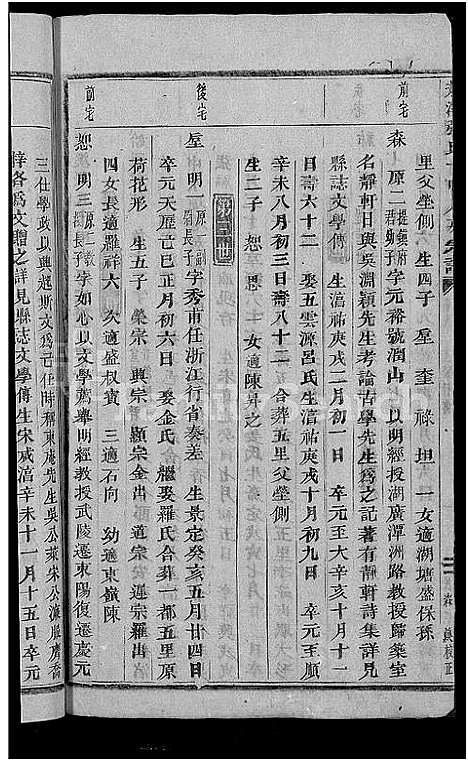 里父塋側 生四子 垕 奎 祿 坦 一女適湖塘盛保孫
前宅
森 原二 提領府君幼子 字元裕號澗山 以明經授湖廣潭洲路教授歸築室
名靜軒日與吳淵穎先生考論古學先生爲之記著有靜軒詩集詳見
縣誌文學傳 生淳祐庚戌二月初一日 卒元至大辛亥十月十一
日壽六十二 娶五雲源呂氏生淳祐庚戌十月初九日 卒元至順
辛未八月初三日壽八十二 合葬五里父塋側
生二子 恕 忌 一女適陳昇之
第三世
後宅
垕 明一 原一府君長子 字秀甫任浙江行省奏差 生景定癸亥五月廿四日
卒元天歷己巳正月初六日 娶金氏 繼娶羅氏合葬一都五里原
荷花形 生五子 榮宗 興宗 顯宗金出 道宗 遠宗羅出
四女長適羅祥六 次適盛叔寶 三適石向 幼適東嶺陳
前宅
恕 明三 原二教諭長子 字如心以文學薦舉明經教授武陵遷東陽復遷慶元
三仕學政以興起斯文爲己任時釋東庵先生吳公萊宋公濂胎慶香
梓各爲文贈之詳見縣誌文學傳生宋咸淳辛未十一月十五日卒元